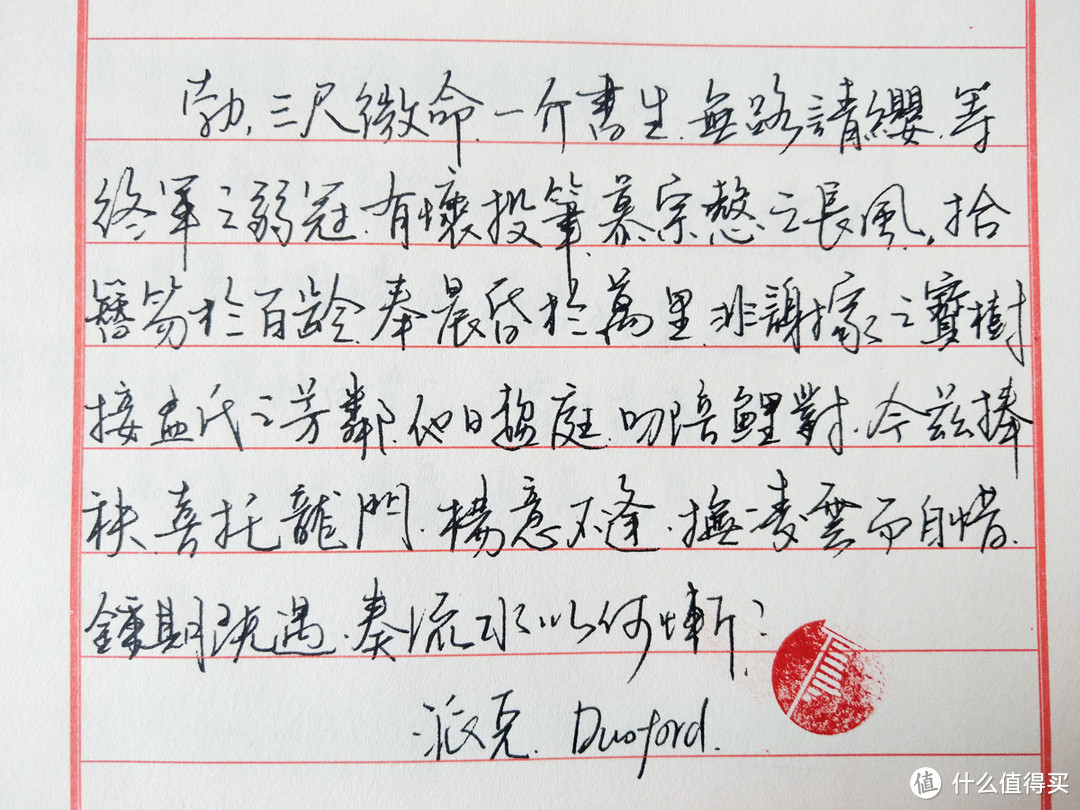 勃，三尺微命，一介書生，無路請纓，等
終軍之弱冠，有懷投筆，慕宗慤之長風。捨
簪笏於百齡，奉晨昏於萬里，非謝家之寶樹
接孟氏之芳鄰，他日趨庭，叨陪鯉對，今茲捧
袂，喜托龍門，楊意不逢，撫凌雲而自惜，
鍾期既遇，奏流水以何慚？
派克 Duoford.
值 什么值得买